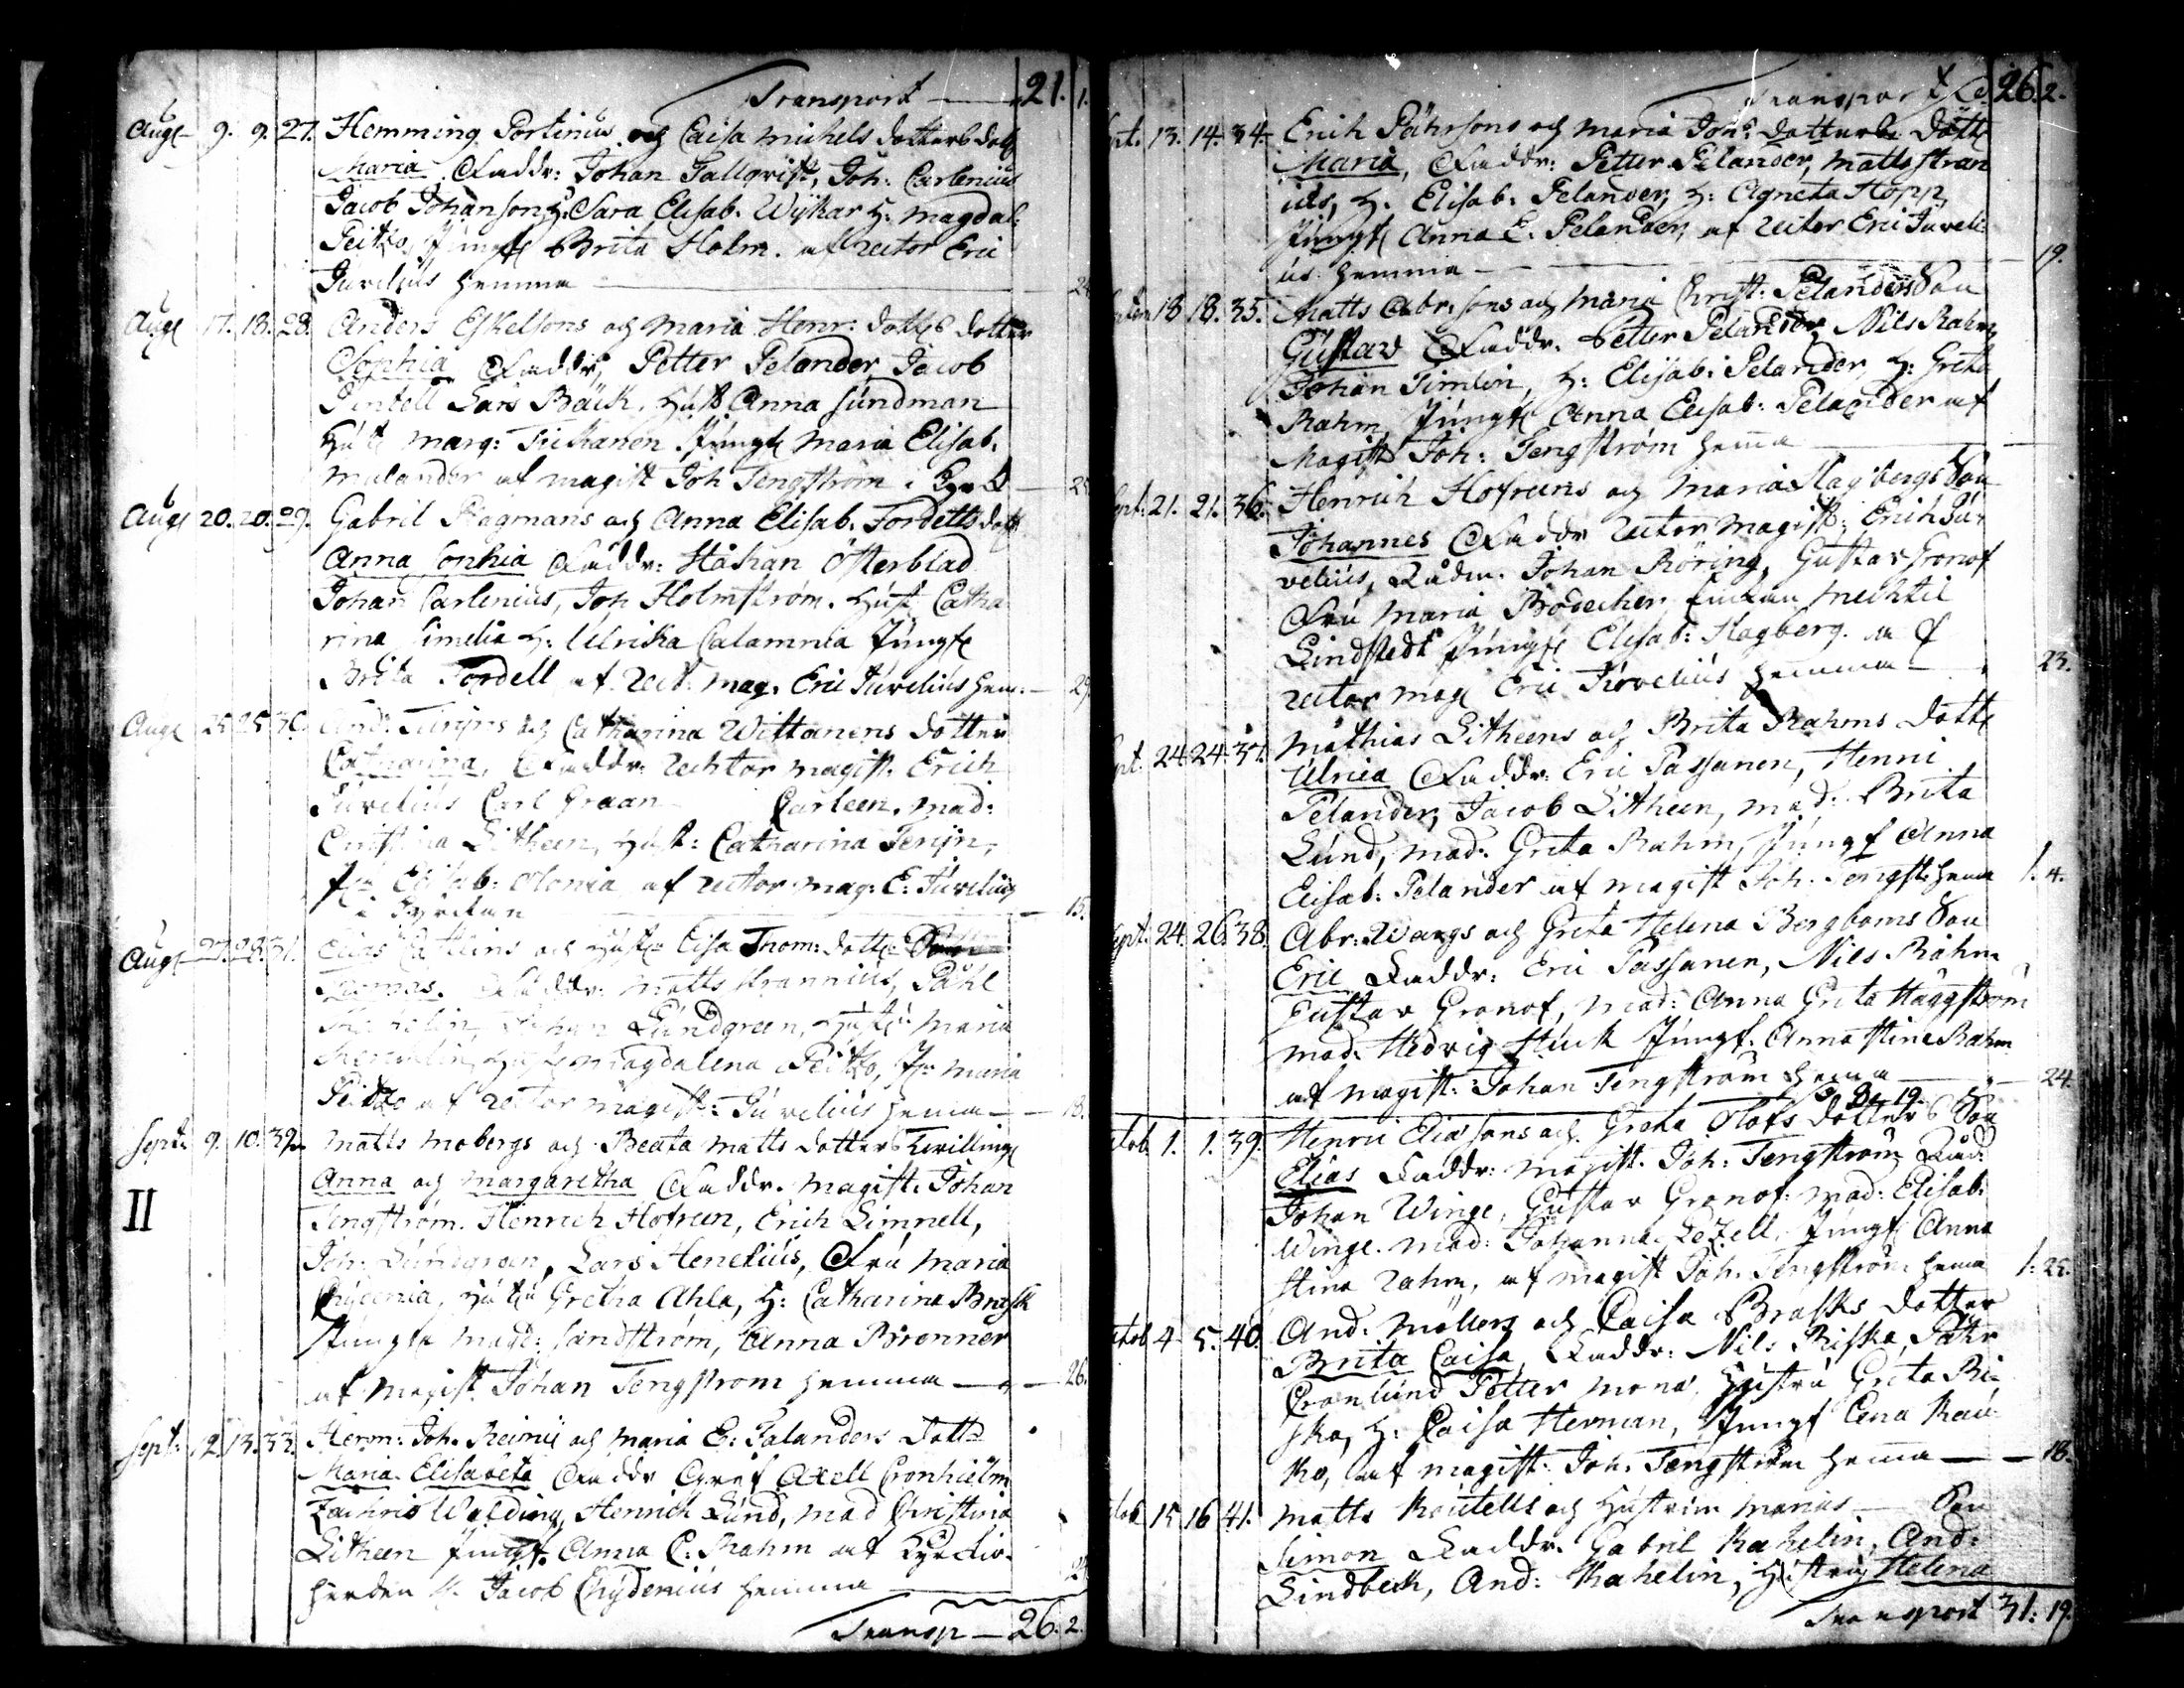 Transport — 21. 1.
Aug 9. 9. 27. Hemming Portinus och Caisa Michels dotters dott
Maria. Faddr: Johan Fallqvist, Joh: Carlenius
Jacob Johanson, H: Sara Elisab. Wijkar H: Magdal:
Peitzo, Jungf Brita Holm. af rector Eric
Juvelius hemma
Aug 17. 18. 28. Anders Eskelsons och Maria Henr: dotters dotter
Sophia Faddr, Petter Pelander, Jacob
Lars Bäck, Hust Anna Sundman
Hust Marg: Tickanen Jungf Maria Elisab.
Melander af magist Joh Tengström i
Aug 20. 20. 29. Gabriel Hagmans och Anna Elisab. Fordells dott
Anna Sophia Faddr: Håkan Österblad
Johan Carlenius, Joh Holmström. Hust Catha
rina Simelia H: Ulrika Calamnia Jungf
Brita Fordell af Rect: mag. Eric Juvelius hem. — 29.
Aug 25 25 30. And: och Catharina Wittanens dotter
Catharina, Faddr: Rechtor magist. Erich
Juvelius Carl Graan Carleen. mad:
Christina Litheen, Hust: Catharina
Elisab: af rector mag: E: Juvelius
i — 15.
Aug 27. 28. 31. Elias och Hust Lisa Thom: dott
Thomas. Faddr: Matts Krannius, Påhl
Johan Lundgren, Hust: Maria
Hust Magdalena Peitzo, Jf: Maria
Peitzo af rector magist: Juvelius hemma — 18.
Sept 9. 10. 32. Matts Mobergs och Beata Matts dotters twilling
II Anna och Margaretha Faddr. Magist. Johan
Tengström. Henrich Hofreen, Erich Limnell,
Joh: Lundgren, Lars Henelius, Fru Maria
Chydenia, Hust Gretha Ahla, H: Catharina Brask
Jungf Magd: Sandström, Anna Brenner
af Magist Johan Tengström hemma — 26.
Sept: 12. 13. 33. Herm: Joh. Reinii och Maria E: Palanders Dott
Maria Elisabeta Faddr Gref Axell Cronhielm
Zachris Walding, Henrich Lund, mad Christina
Litheen Jungf. Anna C: Rahm af Kyrckio-
herden H. Jacob Chydenius hemma
Transp — 26. 2.
Transport 26. 2.
13. 14. 34. Erich Påhrsons och Maria Joh: dotters Dott
Maria, Faddr: Petter Pelander, Matts Kran
ius, H. Elisab: Pelander, H: Agneta Hopp
Jungf Anna E. Pelander, af rector Eric Juveli
us hemma — 19.
18 18. 35. Matts Abr: sons och Maria Christ: Pelanders Son
Gustav Faddr. Petter Pelander Nils Rahm
Johan Timlin, H: Elisab: Pelander, H: Greta
Rahm, Jungf Anna Elisab: Pelander af
Magist Joh: Tengström hema
21. 21. 36. Henrich Hofreens och Maria Hagbergs Son
Johannes Faddr rector Magist: Erich Ju-
velius, Rådm. Johan Röring, Gustav Gronof
Fru Maria Brodecher, Enkan Mechtil
Lindstedt Jungf Elisab: Hagberg. af
rector mag Eric Juvelius hemma — 23.
24. 24. 37. Mathias Litheens och Brita Rahms Dott
Ulrica Faddr: Eric Passanen, Henric
Pelander, Jacob Litheen, mad: Brita
Lund, mad: Greta Rahm, Jungf Anna
Elisab: Pelander af magist Joh. Tengst: hema 1. 4.
24. 26. 38. Abr: Wargs och Greta Helena Bergboms Son
Eric Faddr: Eric Passanen, Nils Rahm
Gustav Gronof, mad: Anna Greta Häggström
mad: Hedvig Huck Jungf. Anna Stina Rahm
af magist: Johan Tengström hema — 24.
1. 1. 39. Henric Eliasons och Greta Olofs dotters Son
Elias Faddr: magist. Joh: Tengström Råd:
Johan Winge, Gustav Gronof: mad: Elisab:
Winge. mad: Johanna Lezell, Jungf Anna
Stina Rahm, af magist Joh. Tengström hema 1: 25.
4 5. 40. And: Möllers och Caisa Brasks Dotter
Brita Caisa Faddr: Nils Riska, Påhr
Cronlund Petter Mona, Hustru Greta Ri-
ska, H: Caisa Herman, Jungf Lena Kau
ko, af magist: Joh. Tengström hema — 18.
15 16 41. Matts Koutells och Hustruns Marias — Son
Simon Faddr. Gabriel Kahelin, And:
Lindbeck, And: Kahelin, Hustru Helena
Transport 31: 19.